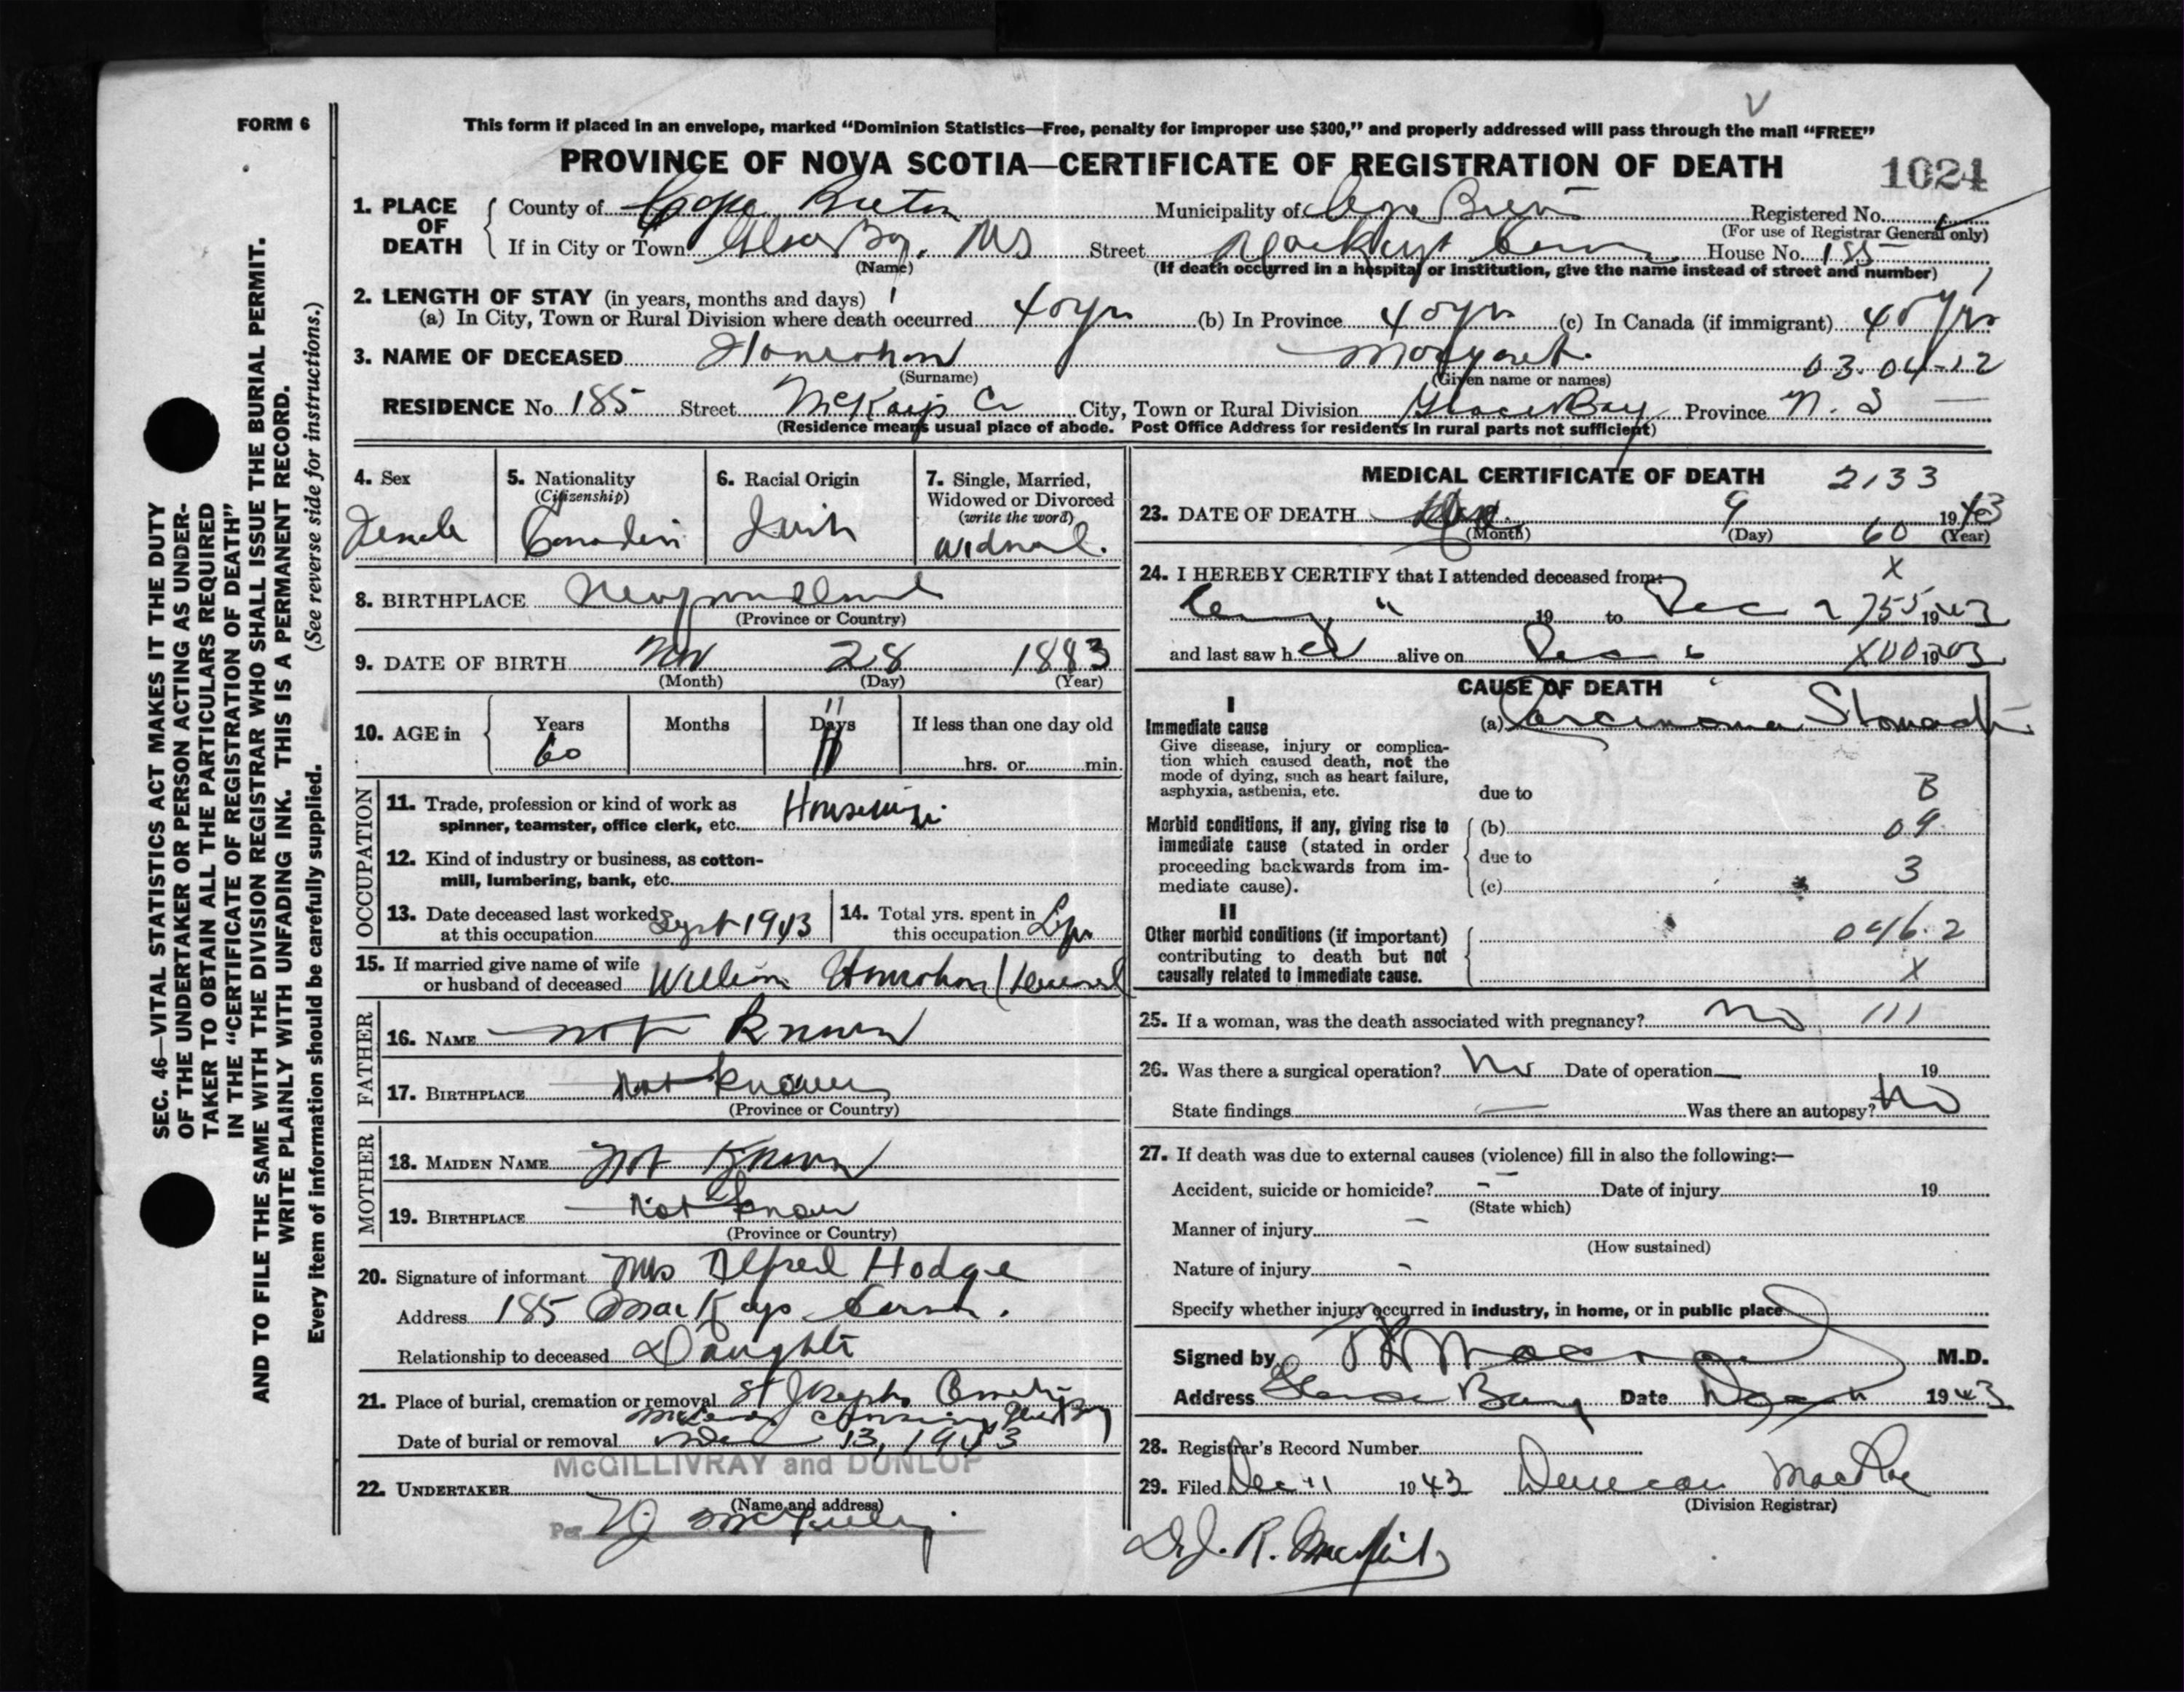 FORM 6
This form if placed in an envelope, marked “Dominion Statistics—Free, penalty for improper use $300,” and properly addressed will pass through the mail “FREE”
PROVINCE OF NOVA SCOTIA—CERTIFICATE OF REGISTRATION OF DEATH 1024
1. PLACE OF DEATH County of Cape Breton Municipality of Cape Breton Registered No.
(For use of Registrar General only)
If in City or Town Glace Bay, NS Street MacKays Corner House No. 185
(Name) (If death occurred in a hospital or institution, give the name instead of street and number)
2. LENGTH OF STAY (in years, months and days)
(a) In City, Town or Rural Division where death occurred 40 yrs (b) In Province 40 yrs (c) In Canada (if immigrant) 40 yrs
3. NAME OF DECEASED Hanrahan Margaret. 03.04-12
(Surname) (Given name or names)
RESIDENCE No. 185 Street McKays Cr City, Town or Rural Division Glace Bay Province N. S
(Residence means usual place of abode. Post Office Address for residents in rural parts not sufficient)
4. Sex Female
5. Nationality (Citizenship) Canadian
6. Racial Origin Irish
7. Single, Married, Widowed or Divorced (write the word) Widowed.
8. BIRTHPLACE Newfoundland
(Province or Country)
9. DATE OF BIRTH Nov 28 1883
(Month) (Day) (Year)
10. AGE in Years 60 Months Days 11 If less than one day old
hrs. or min.
OCCUPATION
11. Trade, profession or kind of work as spinner, teamster, office clerk, etc. Housewife
12. Kind of industry or business, as cotton-mill, lumbering, bank, etc.
13. Date deceased last worked at this occupation Sept 1943
14. Total yrs. spent in this occupation Life
15. If married give name of wife or husband of deceased William Hanrahan (deceased
FATHER
16. NAME not known
17. BIRTHPLACE Not known
(Province or Country)
MOTHER
18. MAIDEN NAME not known
19. BIRTHPLACE Not know
(Province or Country)
20. Signature of informant Mrs Alfred Hodge
Address 185 MacKays Corner.
Relationship to deceased Daughter
21. Place of burial, cremation or removal St Josephs Cemetery
Crossing, Glace Bay
Date of burial or removal Dec 13, 1943
McGILLIVRAY and DUNLOP
22. UNDERTAKER
(Name and address)
Per
MEDICAL CERTIFICATE OF DEATH 2133
23. DATE OF DEATH Dec 9 1943
(Month) (Day) 60 (Year)
24. I HEREBY CERTIFY that I attended deceased from: X
19 to Dec 2 755 1943
and last saw h er alive on Dec 6 X00 1943
CAUSE OF DEATH
I
Immediate cause (a) Carcinoma Stomach
Give disease, injury or complication which caused death, not the mode of dying, such as heart failure, asphyxia, asthenia, etc.
due to B
Morbid conditions, if any, giving rise to immediate cause (stated in order proceeding backwards from immediate cause).
(b) 09
due to
(c) 3
II
Other morbid conditions (if important) contributing to death but not causally related to immediate cause.
046.2
X
25. If a woman, was the death associated with pregnancy? No 111
26. Was there a surgical operation? No Date of operation — 19
State findings — Was there an autopsy? No
27. If death was due to external causes (violence) fill in also the following:—
Accident, suicide or homicide? - Date of injury 19
(State which)
Manner of injury -
(How sustained)
Nature of injury -
Specify whether injury occurred in industry, in home, or in public place
Signed by M.D.
Address Glace Bay Date Dec 11 1943
28. Registrar's Record Number
29. Filed Dec 11 1943 Duncan MacRae
(Division Registrar)
Dr J. R.
SEC. 46—VITAL STATISTICS ACT MAKES IT THE DUTY
OF THE UNDERTAKER OR PERSON ACTING AS UNDER-
TAKER TO OBTAIN ALL THE PARTICULARS REQUIRED
IN THE “CERTIFICATE OF REGISTRATION OF DEATH”
AND TO FILE THE SAME WITH THE DIVISION REGISTRAR WHO SHALL ISSUE THE BURIAL PERMIT.
WRITE PLAINLY WITH UNFADING INK. THIS IS A PERMANENT RECORD.
Every item of information should be carefully supplied. (See reverse side for instructions.)